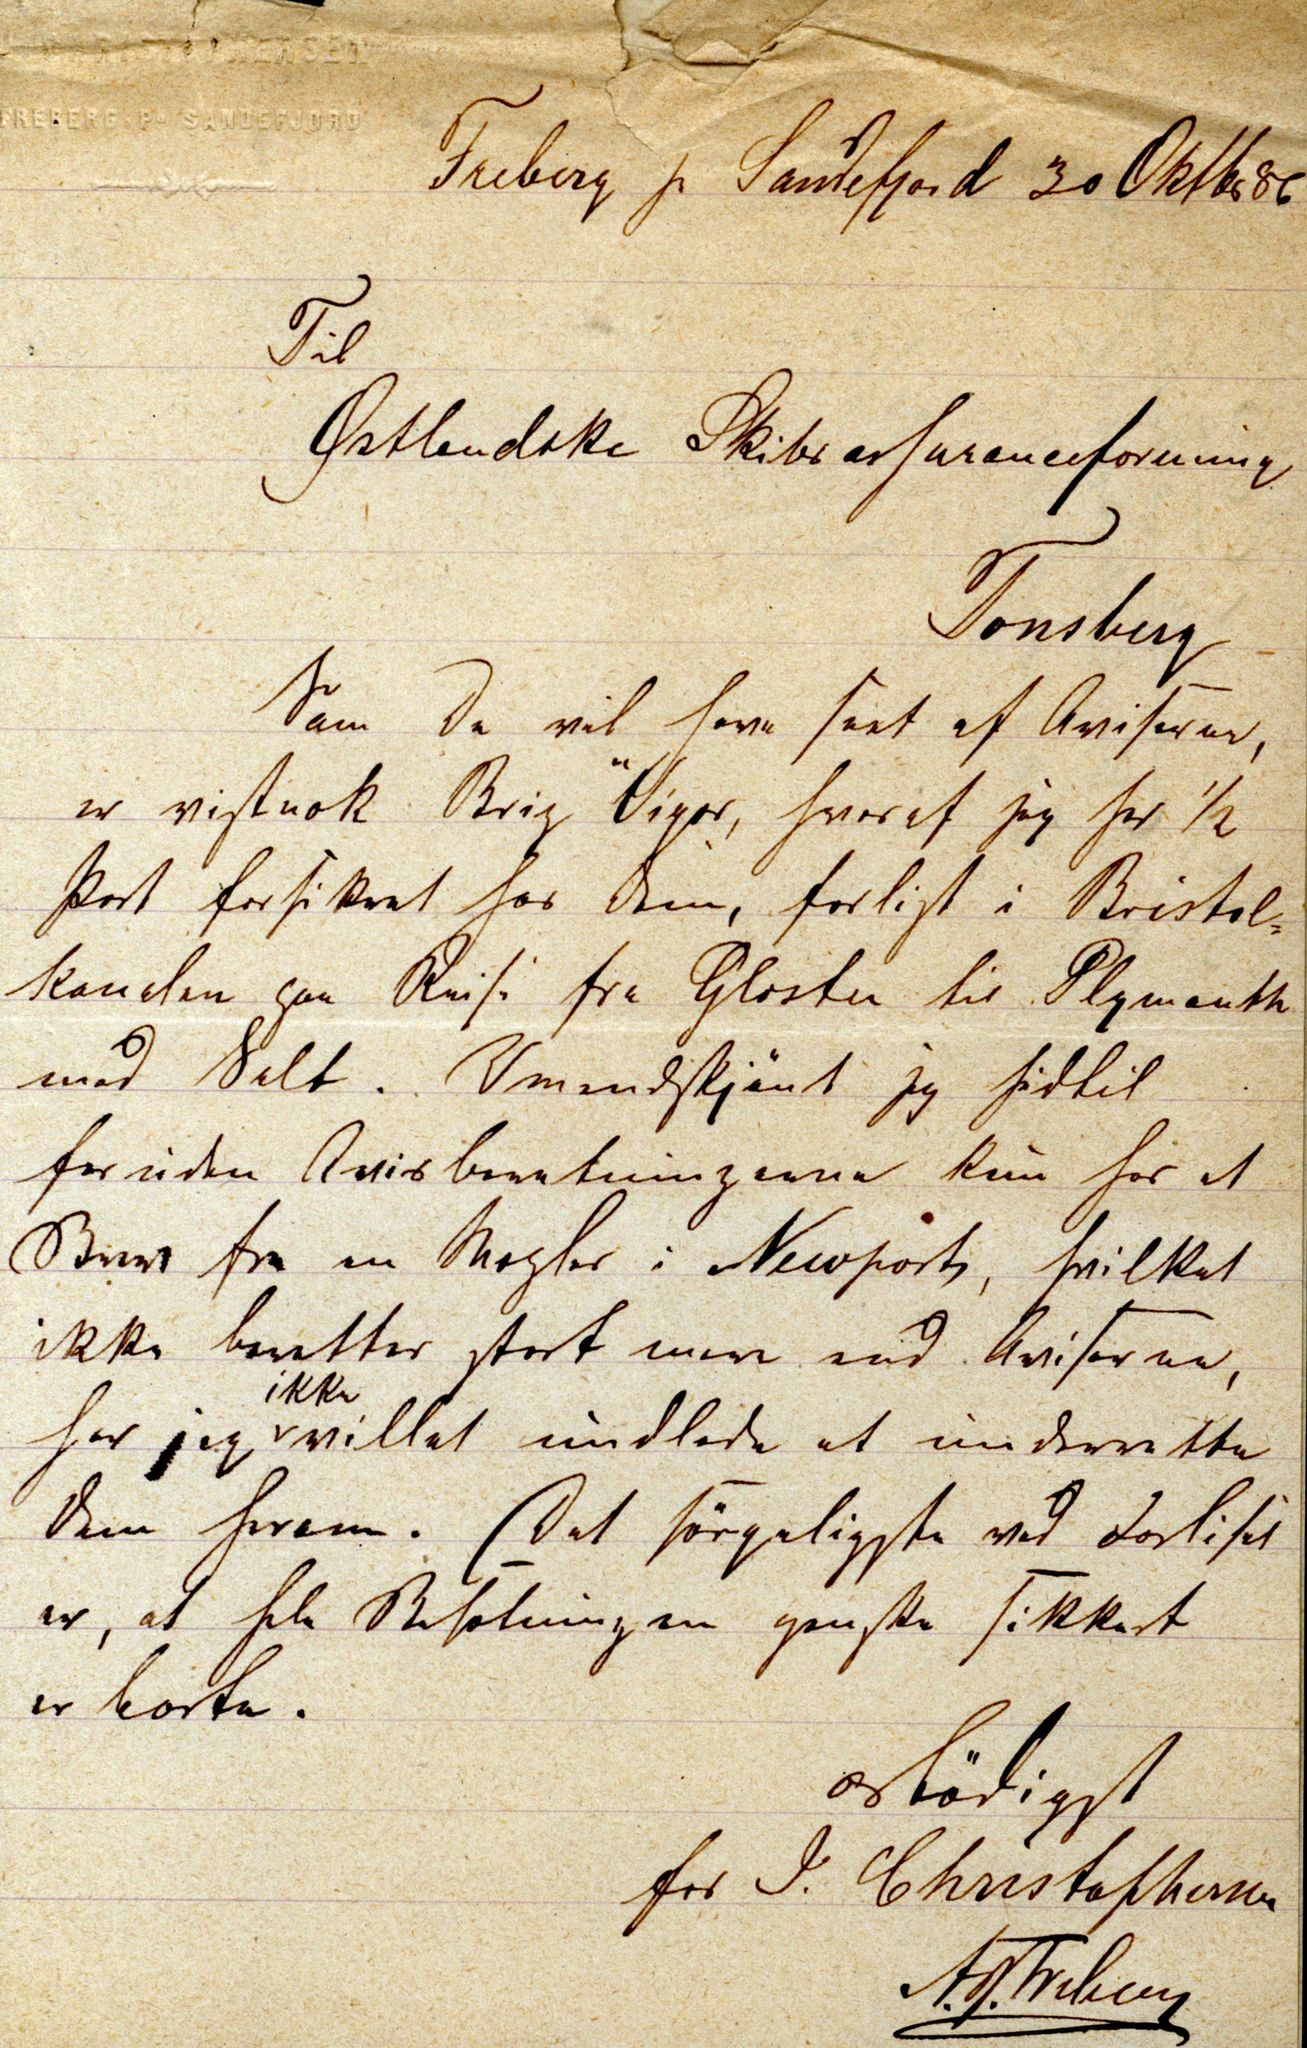 FREBERG Pr SANDEFJORD
Freberg pr Sandefjord 30 Oktbr 86
Til
Østlandske Skibsassuranceforening
Tønsberg
Som De vil have seet af Aviserne,
er vistnok Brig "Vigor, hvoraf jeg har 1/2
Part forsikret hos Dem, forlist i Bristol=
kanalen paa Reise fra Gloster til Plymouth
med Salt. Omendskjönt jeg hidtil
foruden Avisberetningerne kun har et
Brev fra en Mægler i Newport, hvilket
ikke beretter stort mere end Aviserne,
har jeg ikke villet undlade at underrette
Dem herom. Det sörgeligste ved Forliset
er, at hele Besætningen ganske sikkert
er borte.
Ærbödigst
for J. Christophersen
A. Freberg